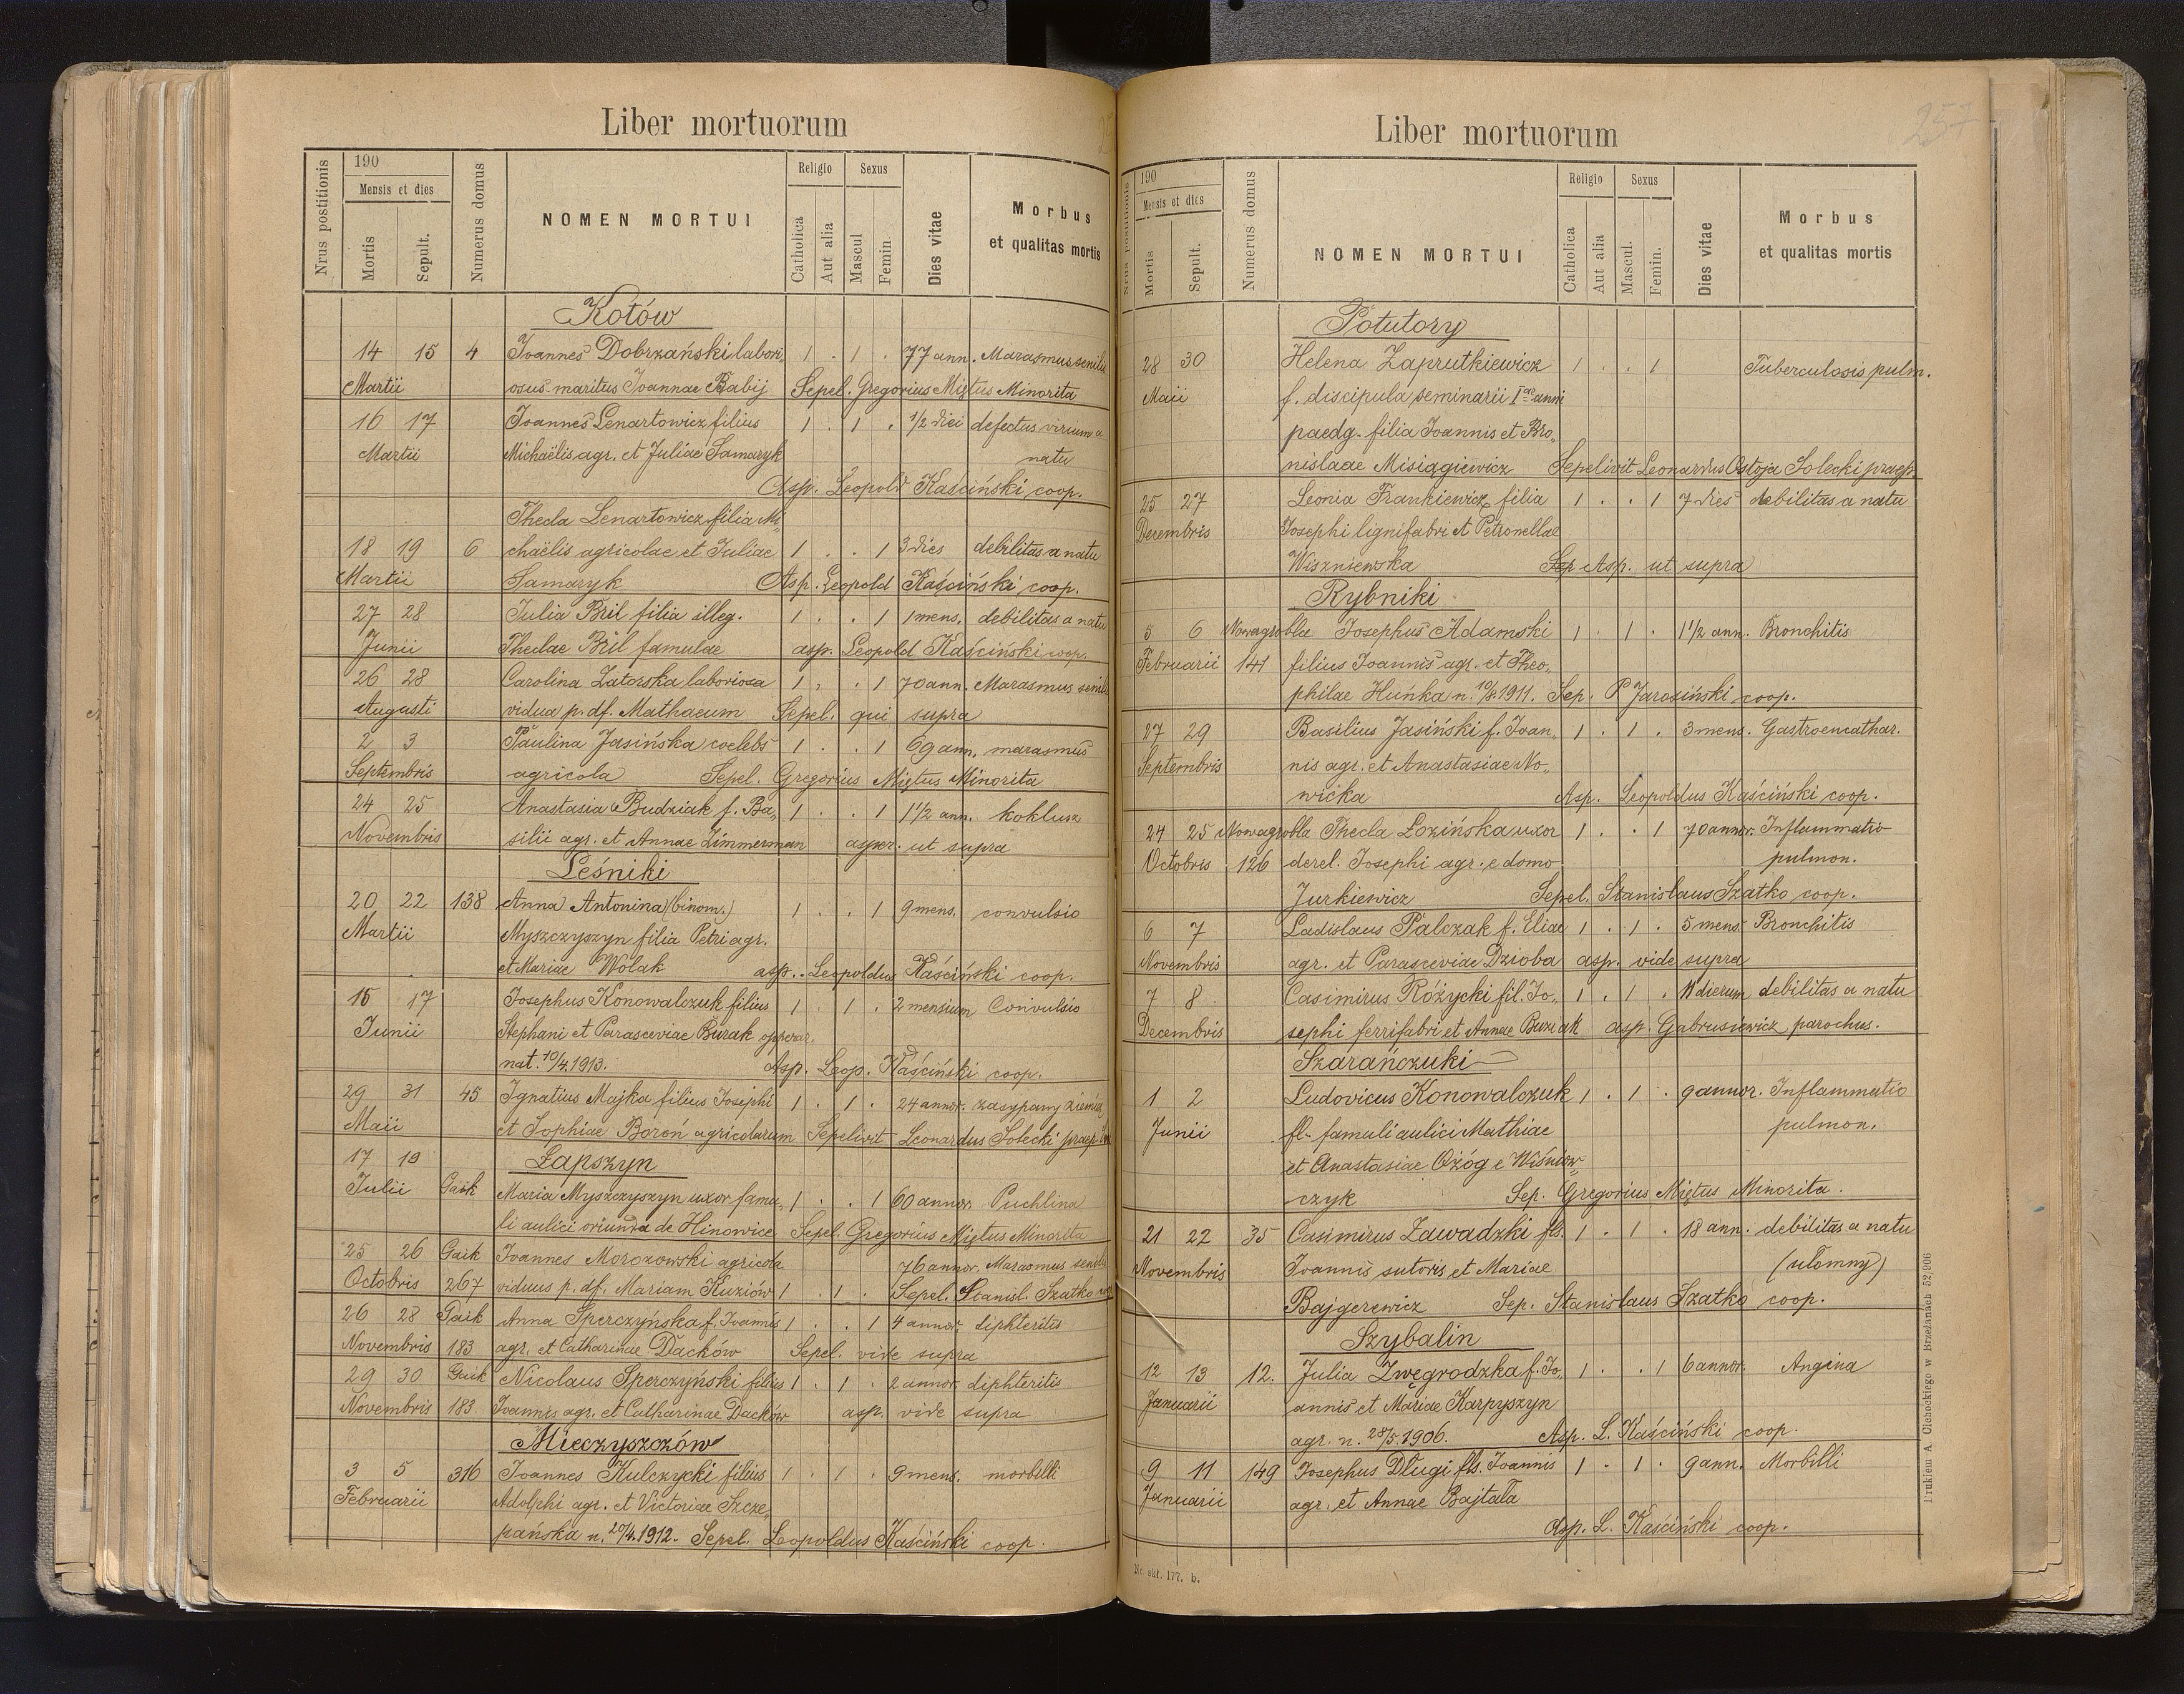 Liber mortuorum
Nrus postitionis
190
Mensis et dies
Mortis
Sepult.
Numerus domus
NOMEN MORTUI
Religio
Catholica
Aut alia
Sexus
Mascul
Femin
Dies vitae
Morbus
et qualitas mortis
Kotów
14 15 4 Joannes Dobrzański labori, 1 . 1 . 77 ann. Marasmus senilis
Martii osus-maritus Joannae Babij Sepel. Gregorius Miętus Minorita
16 17 Joannes Lenartowicz filius 1 . 1 . 1/2 diei defectus virium a
Martii Michaëlis agr. et Juliae Samaryk natu
Asp. Leopold Kaściński coop.
Thecla Lenartowicz filia Mi,,
18 19 6 chaëlis agricolae et Juliae 1 . . 1 3 dies debilitas a natu
Martii Samaryk Asp. Leopold Kaściński coop.
27 28 Julia Bril filia illeg. 1 . . 1 1 mens. debilitas a natu
Junii Theclae Bril famulae asp. Leopold Kaściński coop.
26 28 Carolina Zatorska laboriosa 1 . . 1 70 ann. Marasmus senilis
Augusti vidua p. df. Mathaeum Sepel. qui supra
2 3 Paulina Jasińska coelebs 1 . . 1 69 ann. marasmus
Septembris agricola Sepel. Gregorius Miętus Minorita
24 25 Anastasia Budziak f. Ba,, 1 . . 1 1 1/2 ann. koklusz
Novembris silii agr. et Annae Zimmerman asper. ut supra
Leśniki
20 22 138 Anna Antonina (binom.) 1 . . 1 9 mens. convulsio
Martii Myszczyszyn filia Petri agr.
et Mariae Wolak asp. Leopoldus Kaściński coop.
15 17 Josephus Konowalczuk filius 1 . 1 . 2 mensium Convulsio
Junii Stephani et Parasceviae Burak operar.
nat. 10/4.1913. Asp. Leop. Kaściński coop.
29 31 45 Ignatius Majka filius Josephi 1 . 1 . 24 annor. zasypany ziemią
Maii et Sophiae Boroń agricolarum Sepelivit Leonardus Solecki praep.
17 19 Łapszyn
Julii Gaik Maria Myszczyszyn uxor famu,, 1 . . 1 60 annor Puchlina
li aulici oriunda de Hinowice Sepel. Gregorius Miętus Minorita
25 26 Gaik Joannes Morozowski agricola 76 annor. Marasmus senilis
Octobris 267 viduus p. df. Mariam Kuziów 1 . 1 . Sepel. Stanisl. Szatko coop
26 28 Gaik Anna Sperczyńska f. Joannis 1 . . 1 4 annor. diphteritis
Novembris 183 agr. et Catharinae Dacków Sepel. vide supra
29 30 Gaik Nicolaus Sperczyński filius 1 . 1 . 2 annor. diphteritis
Novembris 183. Joannis agr. et Catharinae Dacków asp. vide supra
Mieczyszczów
3 5 316 Joannes Kulczycki filius 1 . 1 . 9 mens. morbilli
Februarii Adolphi agr. et Victoriae Szcze,,
pańska n. 20/4.1912. Sepel. Leopoldus Kaściński coop.
257
Liber mortuorum
Nrus postitionis
190
Mensis et dies
Mortis
Sepult.
Numerus domus
NOMEN MORTUI
Religio
Catholica
Aut alia
Sexus
Mascul.
Femin.
Dies vitae
Morbus
et qualitas mortis
Potutory
28 30 Helena Zaprutkiewicz 1 . . 1 Tuberculosis pulm.
Maii f. discipula seminarii I anni
paedg. filia Joannis et Bro,,
nislaae Misiągiewicz Sepelivit Leonardus Ostoja Solecki praep.
25 27 Leonia Frankiewicz filia 1 . . 1 7 dies debilitas a natu
Decembris Josephi lignifabri et Petronellae
Wiszniewska Sep Asp. ut supra
Rybniki
5 6 Nowagrobla Josephus Adamski 1 . 1 . 1 1/2 ann. Bronchitis
Februarii 141 filius Joannis agr. et Theo,,
philae Huńka n. 10/8.1911. Sep. P Jarosiński coop.
27 29 Basilius Jasiński f. Joan,, 1 . 1 . 3 mens. Gastroencathar.
Septembris nis agr. et Anastasiae No,,
wicka Asp. Leopoldus Kaściński coop.
24 25 Nowagrobla Thecla Łozińska uxor 1 . . 1 70 annor. Inflammatio
Octobris 126 derel. Josephi agr. e domo pulmon.
Jurkiewicz Sepel. Stanislaus Szatko coop.
6 7 Ladislaus Palczak f. Eliae 1 . 1 . 5 mens. Bronchitis
Novembris agr. et Parasceviae Dzioba asp. vide supra
7 8 Casimirus Różycki fil. Jo,, 1 . 1 . 11 dierum debilitas a natu
Decembris sephi ferrifabri et Annae Buziak asp. Gabrusiewicz parochus.
Szarańczuki
1 2 Ludovicus Konowalczuk 1 . 1 . 9 annor. Inflammatio
Junii fl. famuli aulici Mathiae pulmon.
et Anastasiae Ożóg e Wiśniow,,
czyk Sep. Gregorius Miętus Minorita.
21 22 35 Casimirus Zawadzki fls. 1 . 1 . 18 ann. debilitas a natu
Novembris Joannis sutoris et Mariae (ułomny)
Bajgerewicz Sep. Stanislaus Szatko coop.
Szybalin
12 13 12. Julia Zwęgrodzka f. Jo,, 1 . . 1 6 annor. Angina
Januarii annis et Mariae Karpyszyn
agr. n. 28/5.1906. Asp. L. Kaściński coop.
9 11 149 Josephus Długi fls. Joannis 1 . 1 . 9 ann. Morbilli
Januarii agr. et Annae Bajtała
Asp. L. Kaściński coop.
Nr. skł. 177. b.
Drukiem A Cichockiego w Brzeżanach 52,906